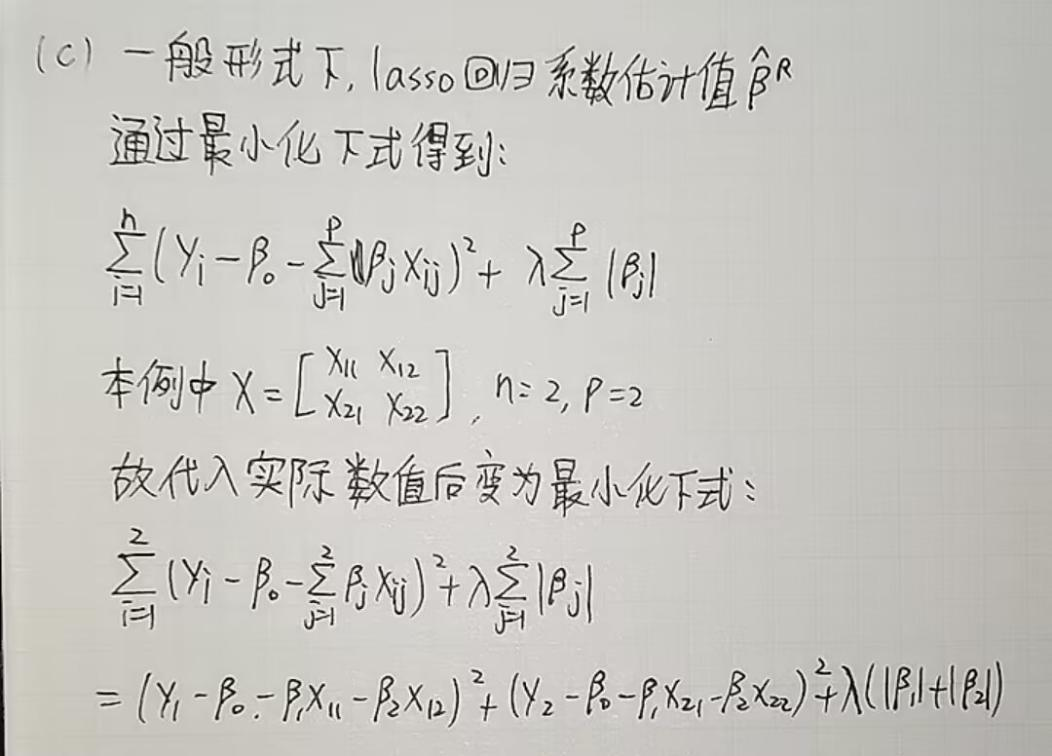 (c) 一般形式下, lasso回归系数估计值 β̂ᴿ
通过最小化下式得到:
∑_{i=1}^{n} (y_i - β_0 - ∑_{j=1}^{p} β_j x_{ij})² + λ∑_{j=1}^{p} |β_j|
本例中 X = [x_{11} x_{12}; x_{21} x_{22}], n=2, p=2
故代入实际数值后变为最小化下式:
∑_{i=1}^{2} (y_i - β_0 - ∑_{j=1}^{2} β_j x_{ij})² + λ∑_{j=1}^{2} |β_j|
= (y_1 - β_0 - β_1 x_{11} - β_2 x_{12})² + (y_2 - β_0 - β_1 x_{21} - β_2 x_{22})² + λ(|β_1|+|β_2|)